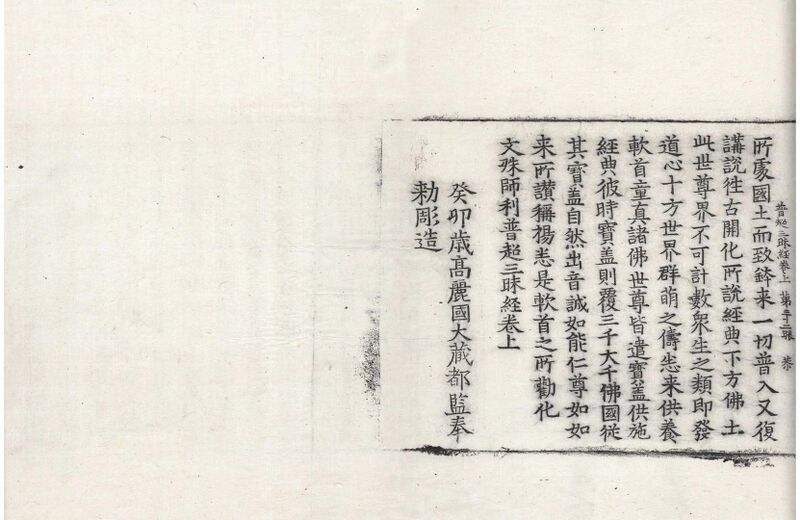 普超三昧經卷上 第三十二張 恭
所處國土而致鉢来一切普入又復
講說徃古開化所說經典下方佛土
此世尊界不可計數衆生之類即發
道心十方世界群萌之儔悉来供養
軟首童真諸佛世尊皆遣寶盖供施
經典彼時寶盖則覆三千大千佛國從
其寶盖自然出音誠如能仁尊如如
来所讃稱揚悉是軟首之所勸化
文殊師利普超三昧經卷上
癸卯歳髙麗國大藏都監奉
勑彫造